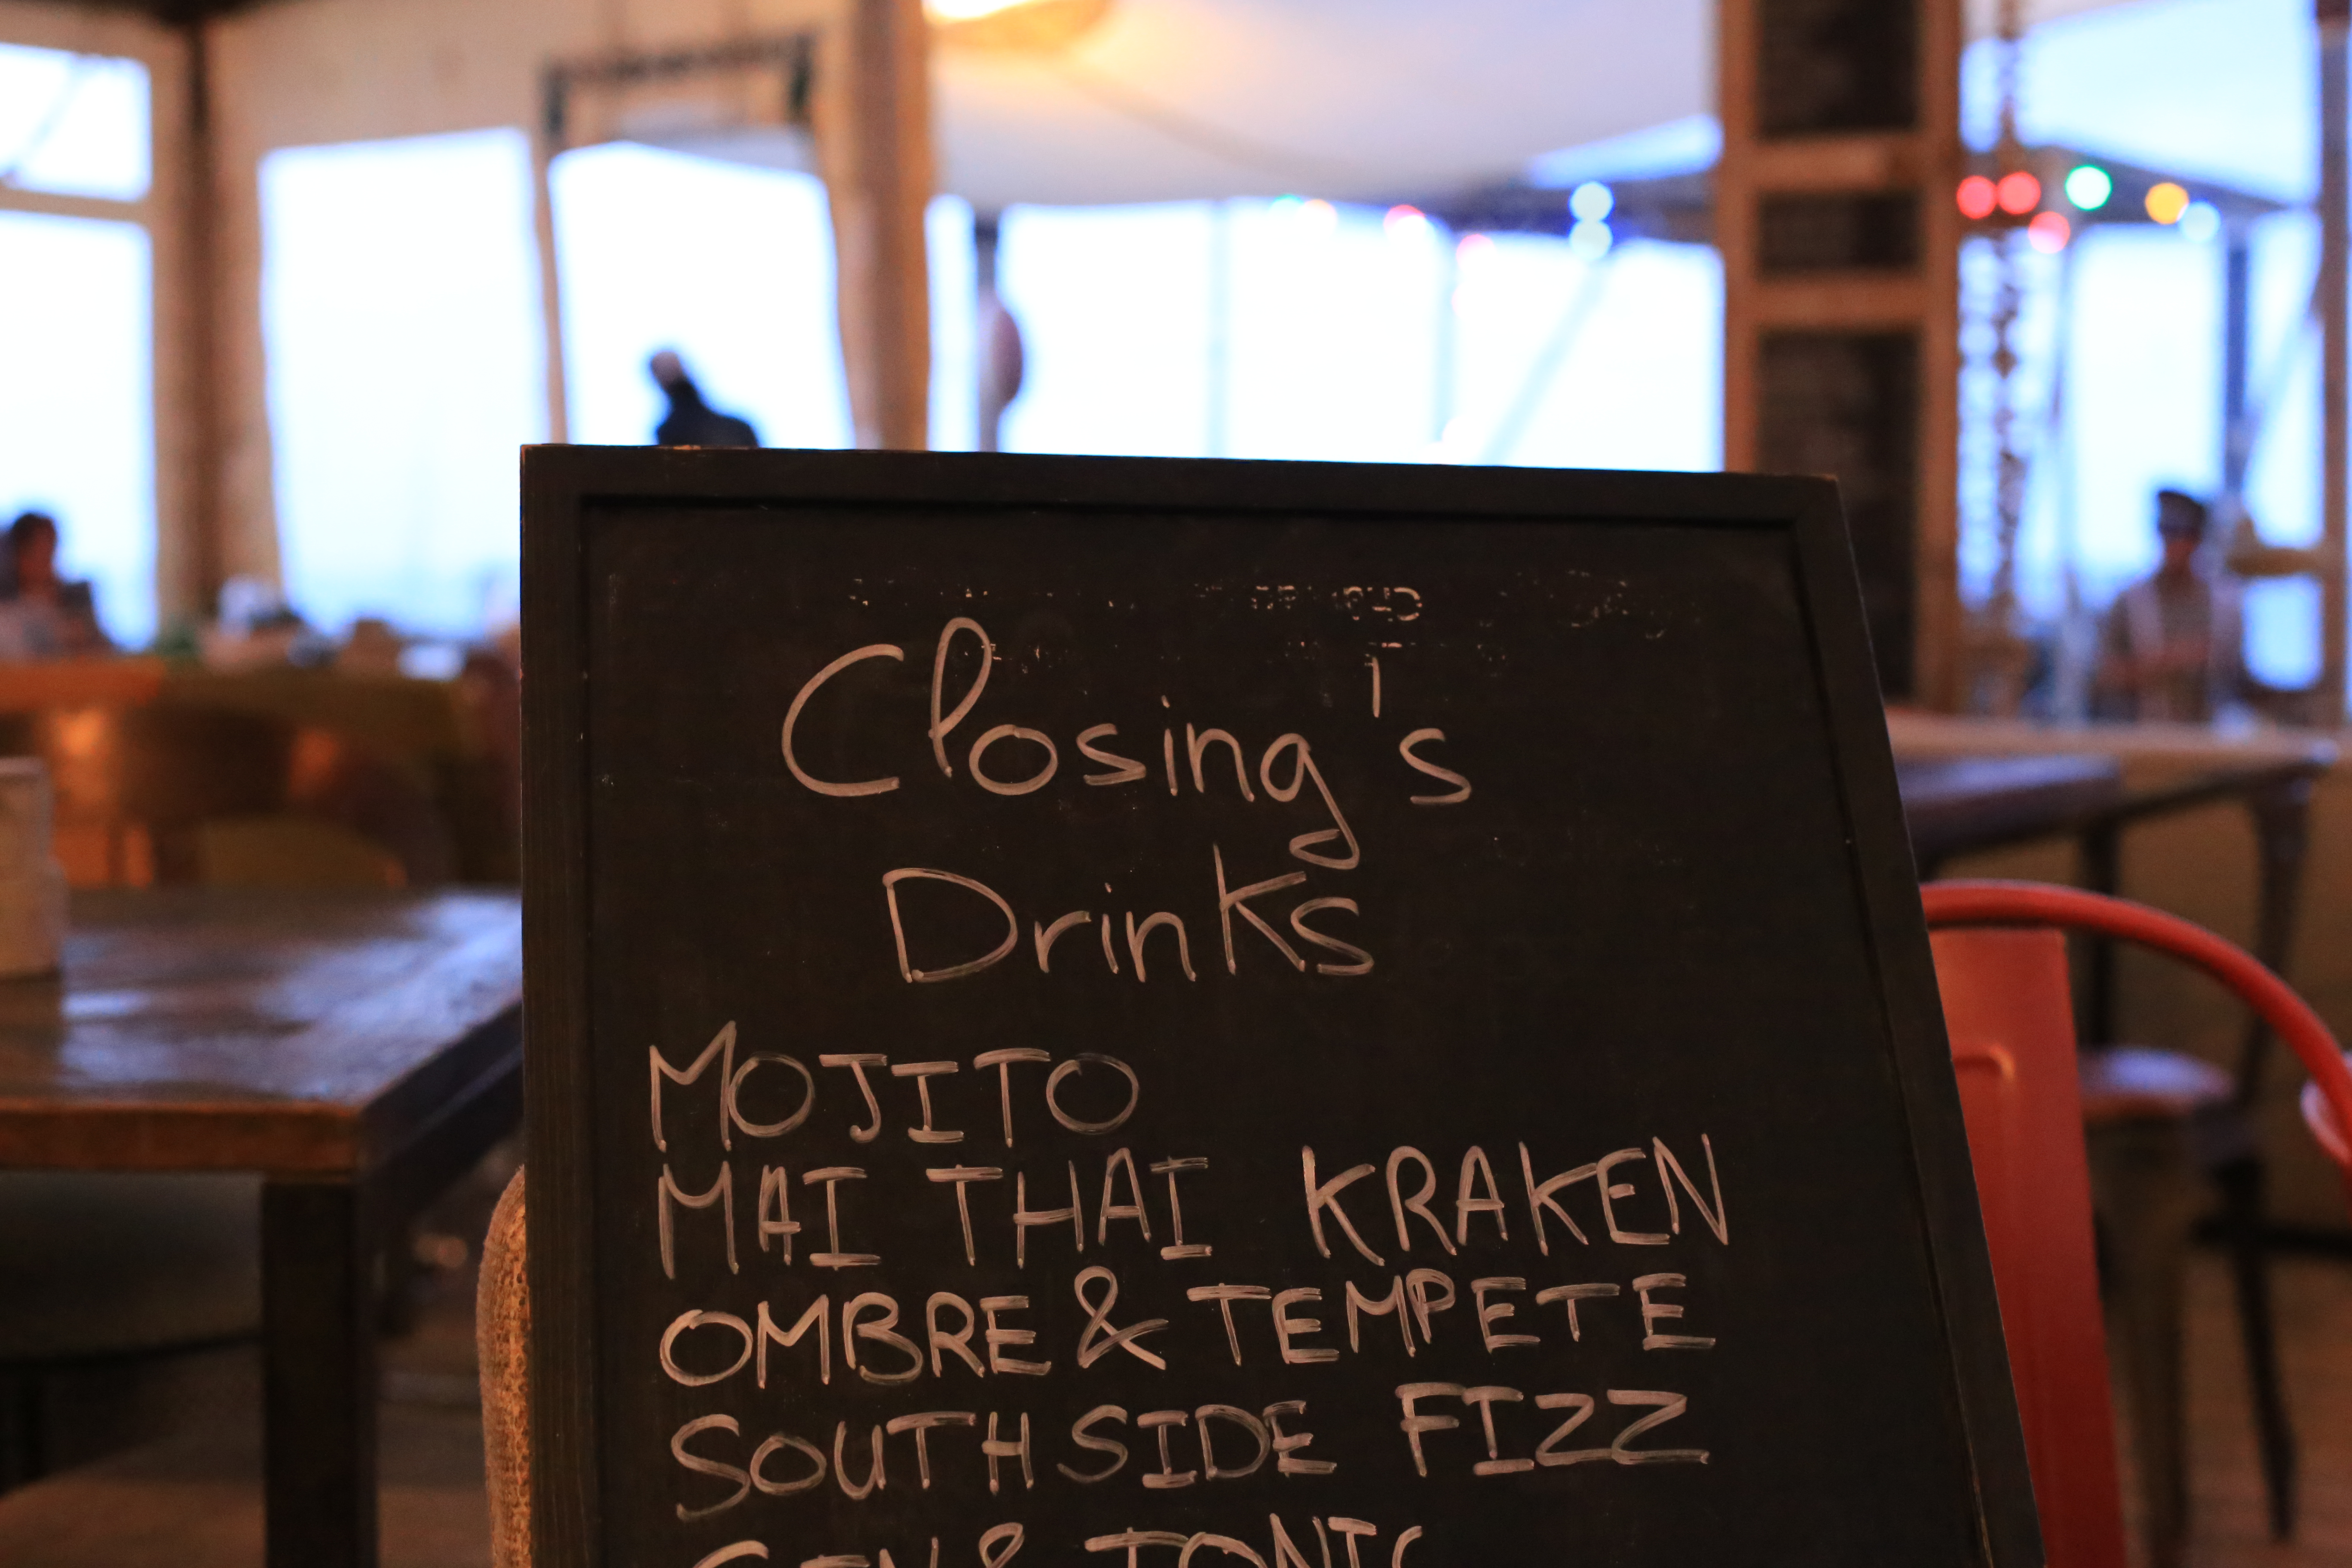 Closing's
Drinks
MOJITO
MAI THAI KRAKEN
OMBRE & TEMPETE
SOUTH SIDE FIZZ
GIN & TONIC